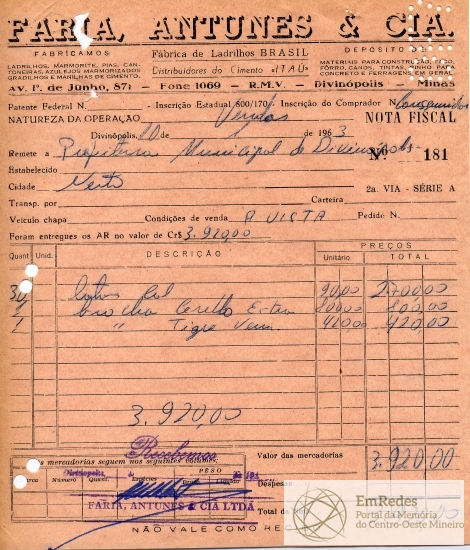 FARIA, ANTUNES & CIA.
FABRICAMOS
LADRILHOS, MARMORITE, PIAS, CAN-
TONEIRAS, AZULEJOS MARMORIZADOS
GRADILHOS E MANILHAS DE CIMENTO.
Fábrica de Ladrilhos BRASIL
Distribuidores do Cimento «ITAÚ»
DEPÓSITO DE
MATERIAIS PARA CONSTRUÇÃO,
FÔRRO, CANOS, TINTAS, PARA
CONCRETO E FERRAGENS EM GERAL
Av. 1º. de Junho, 871 - Fone 1069 - R.M.V. - Divinópolis - Minas
Patente Federal N. - Inscrição Estadual 600/170 - Inscrição do Comprador N. Consumidor
NATUREZA DA OPERAÇÃO Vendas NOTA FISCAL
Divinópolis, 10 de 1963
Remete a Prefeitura Municipal de Divinópolis Nº 181
Estabelecido
Cidade Nesta
Transp. por Carteira 2a. VIA - SÉRIE A
Veículo chapa Condições de venda A VISTA Pedido N.
Foram entregues os AR no valor de Cr$ 3.920,00
Quant. Unid. DESCRIÇÃO PREÇOS
Unitário TOTAL
30 Cal 90,00 2.700,00
1 brocha 800,00 800,00
1 " Tigre 420,00 420,00
3.920,00
Recebemos
As mercadorias seguem nos seguintes volumes:
Marca Número Quant. Espécies PÊSO
Divinópolis, de de 196
FARIA, ANTUNES & CIA LTDA
Valor das mercadorias 3.920,00
Despesas
Total da
NÃO VALE COMO RECIBO
EmRedes
Portal da Memória
do Centro-Oeste Mineiro